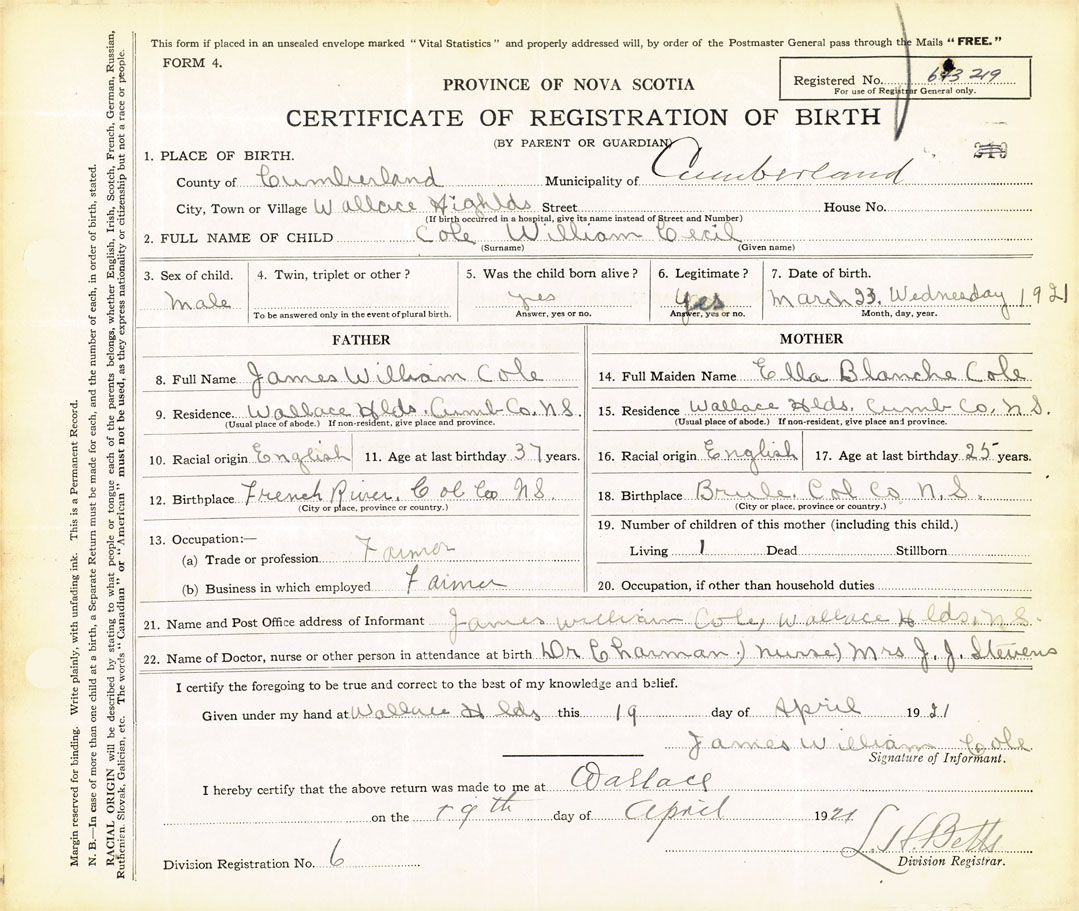 This form if placed in an unsealed envelope marked "Vital Statistics" and properly addressed will, by order of the Postmaster General pass through the Mails "FREE."
FORM 4.
Registered No. 643 219
For use of Registrar General only.
PROVINCE OF NOVA SCOTIA
CERTIFICATE OF REGISTRATION OF BIRTH
(BY PARENT OR GUARDIAN)
1. PLACE OF BIRTH.
County of Cumberland Municipality of Cumberland
City, Town or Village Wallace Highlds Street House No.
(If birth occurred in a hospital, give its name instead of Street and Number)
2. FULL NAME OF CHILD Cole William Cecil
(Surname) (Given name)
3. Sex of child. 4. Twin, triplet or other? 5. Was the child born alive? 6. Legitimate? 7. Date of birth.
Male yes yes March 23. Wednesday 1921
To be answered only in the event of plural birth. Answer, yes or no. Answer, yes or no. Month, day, year.
FATHER
8. Full Name James William Cole
9. Residence. Wallace Hlds. Cumb Co. N.S.
(Usual place of abode.) If non-resident, give place and province.
10. Racial origin English 11. Age at last birthday 37 years.
12. Birthplace French River. Col Co N.S.
(City or place, province or country.)
13. Occupation:—
(a) Trade or profession Farmer
(b) Business in which employed Farmer
MOTHER
14. Full Maiden Name Ella Blanche Cole
15. Residence Wallace Hlds. Cumb Co. N.S.
(Usual place of abode.) If non-resident, give place and province.
16. Racial origin English 17. Age at last birthday 25 years.
18. Birthplace Brule. Col Co N.S.
(City or place, province or country.)
19. Number of children of this mother (including this child.)
Living 1 Dead Stillborn
20. Occupation, if other than household duties
21. Name and Post Office address of Informant James William Cole, Wallace Hlds, N.S.
22. Name of Doctor, nurse or other person in attendance at birth Dr Charman.) Nurse) Mrs J. J. Stevens
I certify the foregoing to be true and correct to the best of my knowledge and belief.
Given under my hand at Wallace Hlds this 19 day of April 1921
James William Cole.
Signature of Informant.
I hereby certify that the above return was made to me at Wallace
on the 19th day of April 1921
L. H. Betts
Division Registrar.
Division Registration No. 6
Margin reserved for binding. Write plainly, with unfading ink. This is a Permanent Record.
N. B.—In case of more than one child at a birth, a Separate Return must be made for each, and the number of each, in order of birth, stated.
RACIAL ORIGIN will be described by stating to what people or tongue each of the parents belongs, whether English, Irish, Scotch, French, German, Russian,
Ruthenian, Slovak, Galician, etc. The words "Canadian" or "American" must not be used, as they express nationality or citizenship but not a race or people.